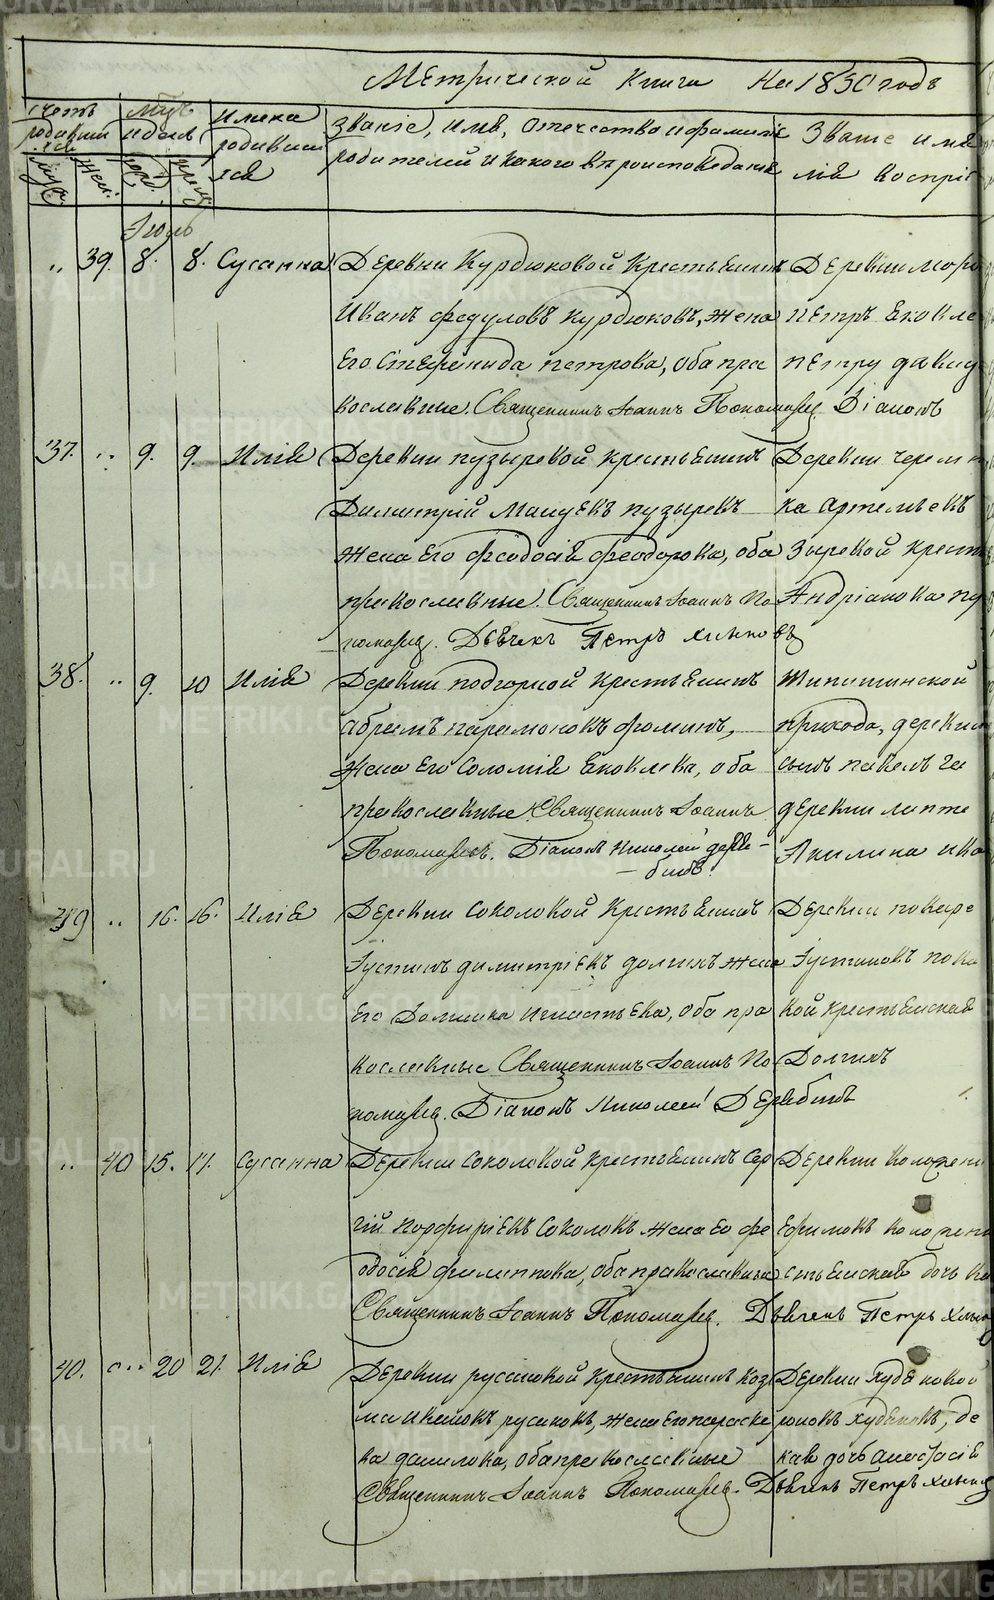 Метрической книги На 1850 годъ
счетъ родивших ся
муж. жен.
Мѣс. и день
рожд. крещ.
имена родивших ся
Званіе, имя, отечество и фамилія родителей и какого вѣроисповеданія
Званіе имя
лія воспріе
Іюль
„ 39. 8. 8. Сусанна
Деревни Курдюковой крестьянинъ
Иванъ Федуловъ Курдюковъ, жена
его Стефанида Петрова, оба пра
вославные. Священникъ Іоаннъ Пономарев. Діаконъ
Петръ Яковле
Петру Давид
37. „ 9. 9. Илія
Деревни Пузыревой крестьянинъ
Димитрій Пузыревъ
жена его Феодосія Феодорова, оба
православные. Священникъ Іоаннъ По
номарев. Дьячекъ Петръ Хлыновъ
Деревни Черемн
ва Артемьевъ
зыревой крестья
Андріанова Пу
38. „ 9. 10 Илія
Деревни Подгорной крестьянинъ
Абрамъ Парамоновъ Фоминъ,
жена его Соломія Яковлева, оба
православные Священникъ Іоаннъ
Пономарев. Діаконъ Николай Деря-
-бинъ.
прихода, деревни
сынъ Павелъ Га
деревни Липте
Акилина Ива
39 „ 16. 16. Илія
Деревни Соколовой крестьянинъ
Іустинъ Димитріевъ Долгихъ жена
его Домника Игнатьева, оба пра
вославные Священникъ Іоаннъ По
номарев. Діаконъ Николай Дерябинъ
Деревни
Іустиновъ
вой крестьянская
Долгихъ
„ 40 15. 17. Сусанна
Деревни Соколовой крестьянинъ Сер
гій Порфиріевъ Соколовъ жена ео Фе
одосія Филиппова, оба православные
Священникъ Іоаннъ Пономарев. Дьячекъ Петръ Хлын
Деревни
Ефимовъ
стьянская дочь
40. „ 20 21. Илія
Деревни Русиновой крестьянинъ Коз
ма Ивановъ Русиновъ, жена его Параске
ва Данилова, оба православные
Священникъ Іоаннъ Пономарев. Дьячекъ Петръ Хлынов
Деревни Худяковой
Худяковъ, де
кая дочь Анастасія